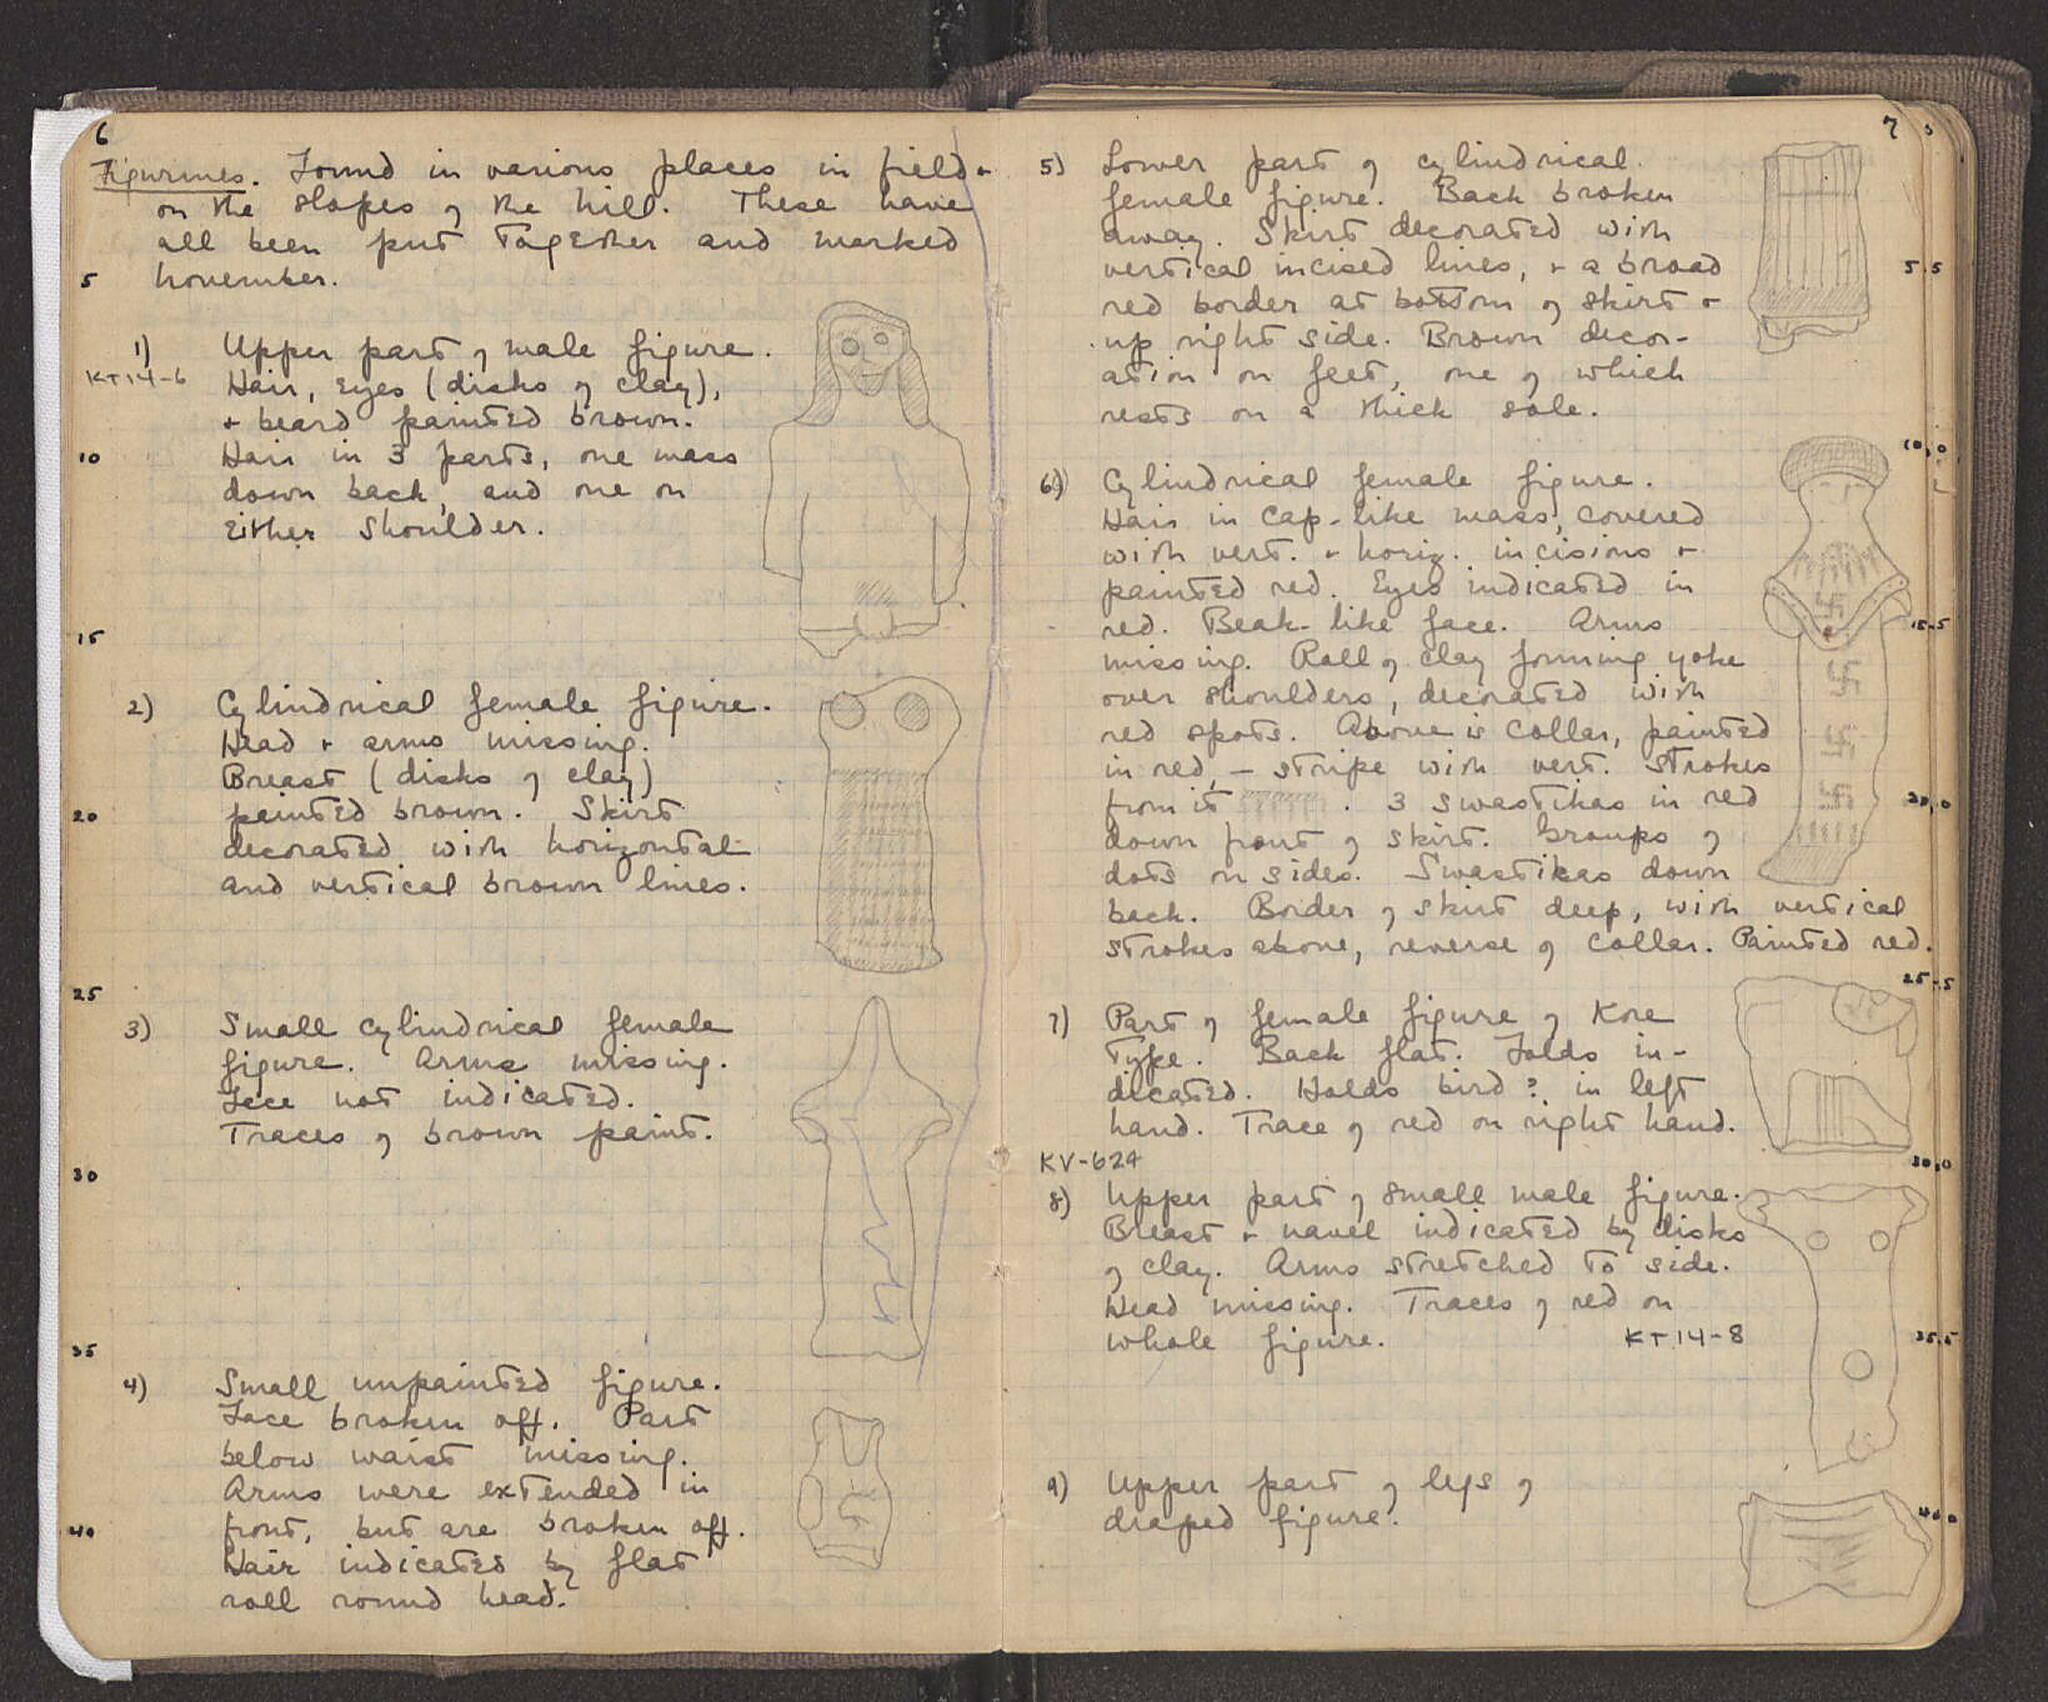 6
Figurines. Found in various places in field +
on the slopes of the hill. These have
all been put together and marked
5 November.
1) Upper part of male figure.
KT14-6 Hair, Eyes (disks of clay),
+ beard painted brown.
10 Hair in 3 parts, one mass
down back, and one on
Either shoulder.
15
2) Cylindrical female figure.
Head + arms missing.
Breast (disks of clay)
20 painted brown. Skirt
decorated with horizontal
and vertical brown lines.
25
3) Small cylindrical female
figure. Arms missing.
Face not indicated.
Traces of brown paint.
30
35
4) Small unpainted figure.
Face broken off. Part
below waist missing.
Arms were extended in
40 front, but are broken off.
Hair indicated by flat
roll round head.
7
5) Lower part of cylindrical
female figure. Back broken
away. Skirt decorated with
vertical incised lines, + a broad 5
red border at bottom of skirt +
up right side. Brown decor-
ation on feet, one of which
rests on a thick sole.
10
6) Cylindrical female figure.
Hair in cap-like mass, covered
with vert. + horiz. incisions +
painted red. Eyes indicated in
red. Beak-like face. Arms 15
missing. Roll of clay forming yoke
over shoulders, decorated with
red spots. Above is collar, painted
in red, - stripe with vert. strokes
from it . 3 swastikas in red 20
down front of skirt. Groups of
dots on sides. Swastikas down
back. Border of skirt deep, with vertical
strokes above, reverse of collar. Painted red.
25
7) Part of female figure of Kore
Type. Back flat. Folds in-
dicated. Holds bird? in left
hand. Trace of red on right hand.
KV-624 30
8) Upper part of small male figure.
Breast + navel indicated by disks
of clay. Arms stretched to side.
Head missing. Traces of red on
whole figure. KT14-8 35
9) Upper part of legs of
draped figure. 40